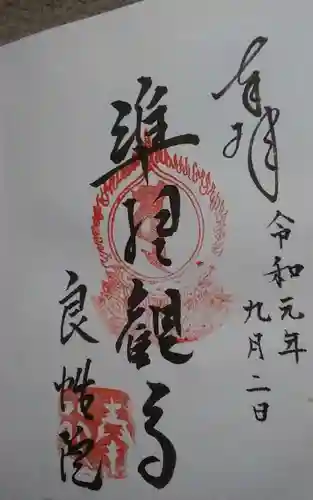 奉拝
令和元年
九月二日
准胝観音
良性院